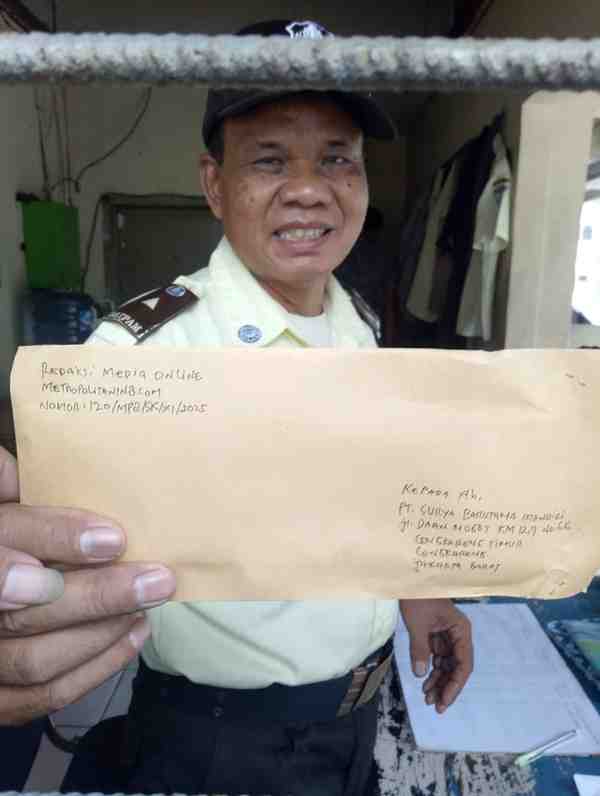 SATPAM
REDAKSI MEDIA ONLINE
METROPOLITANINB.COM
NOMOR: 120/MPB/SK/XI/2025
KEPADA Yth,
PT. SURYA BATUTAMA MANDIRI
Jl. DAAN MOGOT KM 12,7 NO 66
CENGKARENG TIMUR
CENGKARENG
JAKARTA BARAT